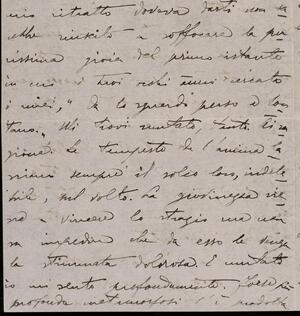 mio ritratto doveva darti non sa
rebbe riuscito a soffocare la pu
rissima gioia del primo istante
in cui i tuoi occhi hanno cercato
i miei," da lo sguardo perso e lon
tano. Mi trovi mutato, tanto. Si,
giovedì. Le tempeste de l'anima la
sciano sempre il solco loro, indele
bile, sul volto. La giovinezza rie
sce a vincere lo strazio ma non
sa impedire che da esso le venga
la stimmata dolorosa. È mutato
io mi sento profondamente. Forse più
profonda metamorfosi s'è prodotta